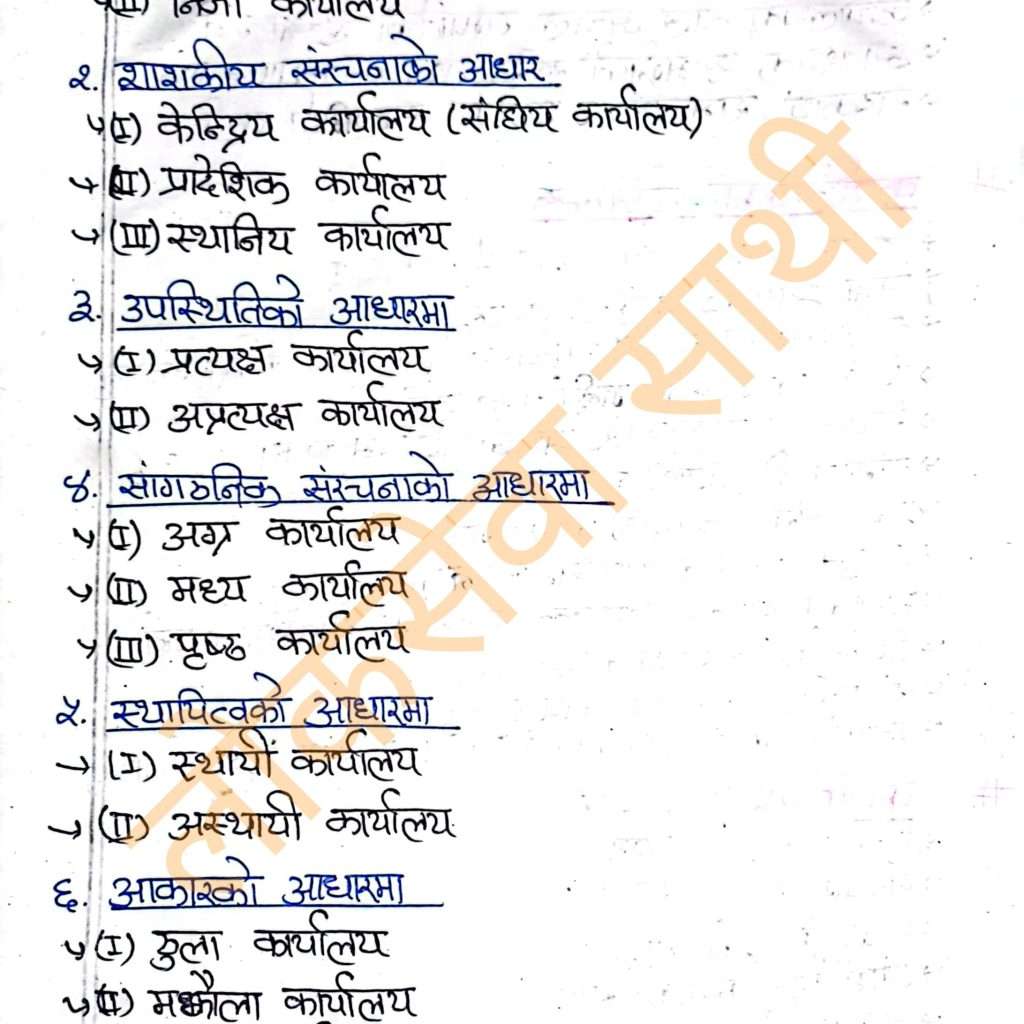 (III) निजी कार्यालय
२. शाशकीय संरचनाको आधार
↳(I) केन्द्रिय कार्यालय (संघिय कार्यालय)
↳(II) प्रादेशिक कार्यालय
↳(III) स्थानिय कार्यालय
३. उपस्थितिको आधारमा
↳(I) प्रत्यक्ष कार्यालय
↳(II) अप्रत्यक्ष कार्यालय
४. सांगठनिक संरचनाको आधारमा
↳(I) अग्र कार्यालय
↳(II) मध्य कार्यालय
↳(III) पृष्ठ कार्यालय
५. स्थायित्वको आधारमा
→(I) स्थायीं कार्यालय
→(II) अस्थायी कार्यालय
६. आकारको आधारमा
↳(I) ठुला कार्यालय
↳(II) मझौला कार्यालय
लोकसेवा साथी